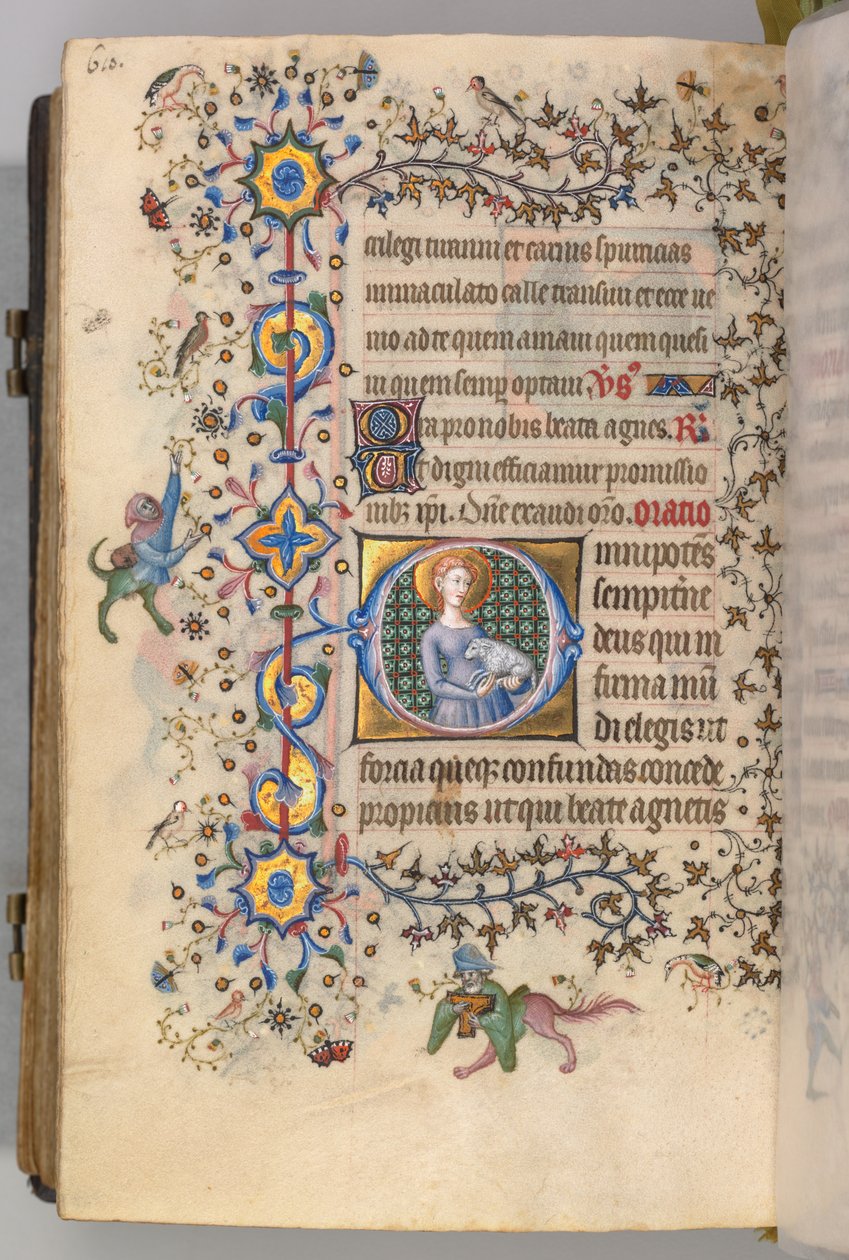 610.
crilegi tiranni et carnis spurcicias
immaculato calle transivi et ecce ve
nio ad te quem amavi quem quesi
vi quem semp optavi V̄s
Ora pro nobis beata agnes. R̄
Ut digni efficiamur promissio
nibȝ xp̄i. Dn̄e exaudi or̄o. oratio
Omnipotēs
sempit̄ne
deus qui in
firma mū
di elegis ut
forcia queqȝ confundas concede
propicius ut qui beate agnetis